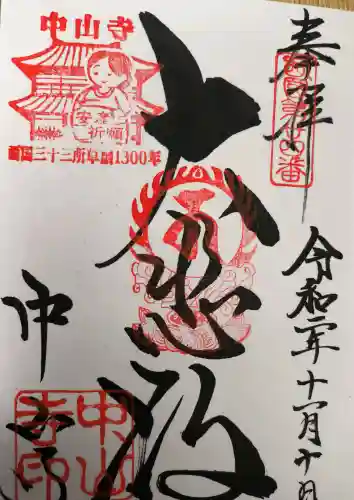 奉拝
令和二年十一月十日
大悲殿
中山寺
寺山中
安産
祈願
西国三十三所草創1300年
中山
寺印